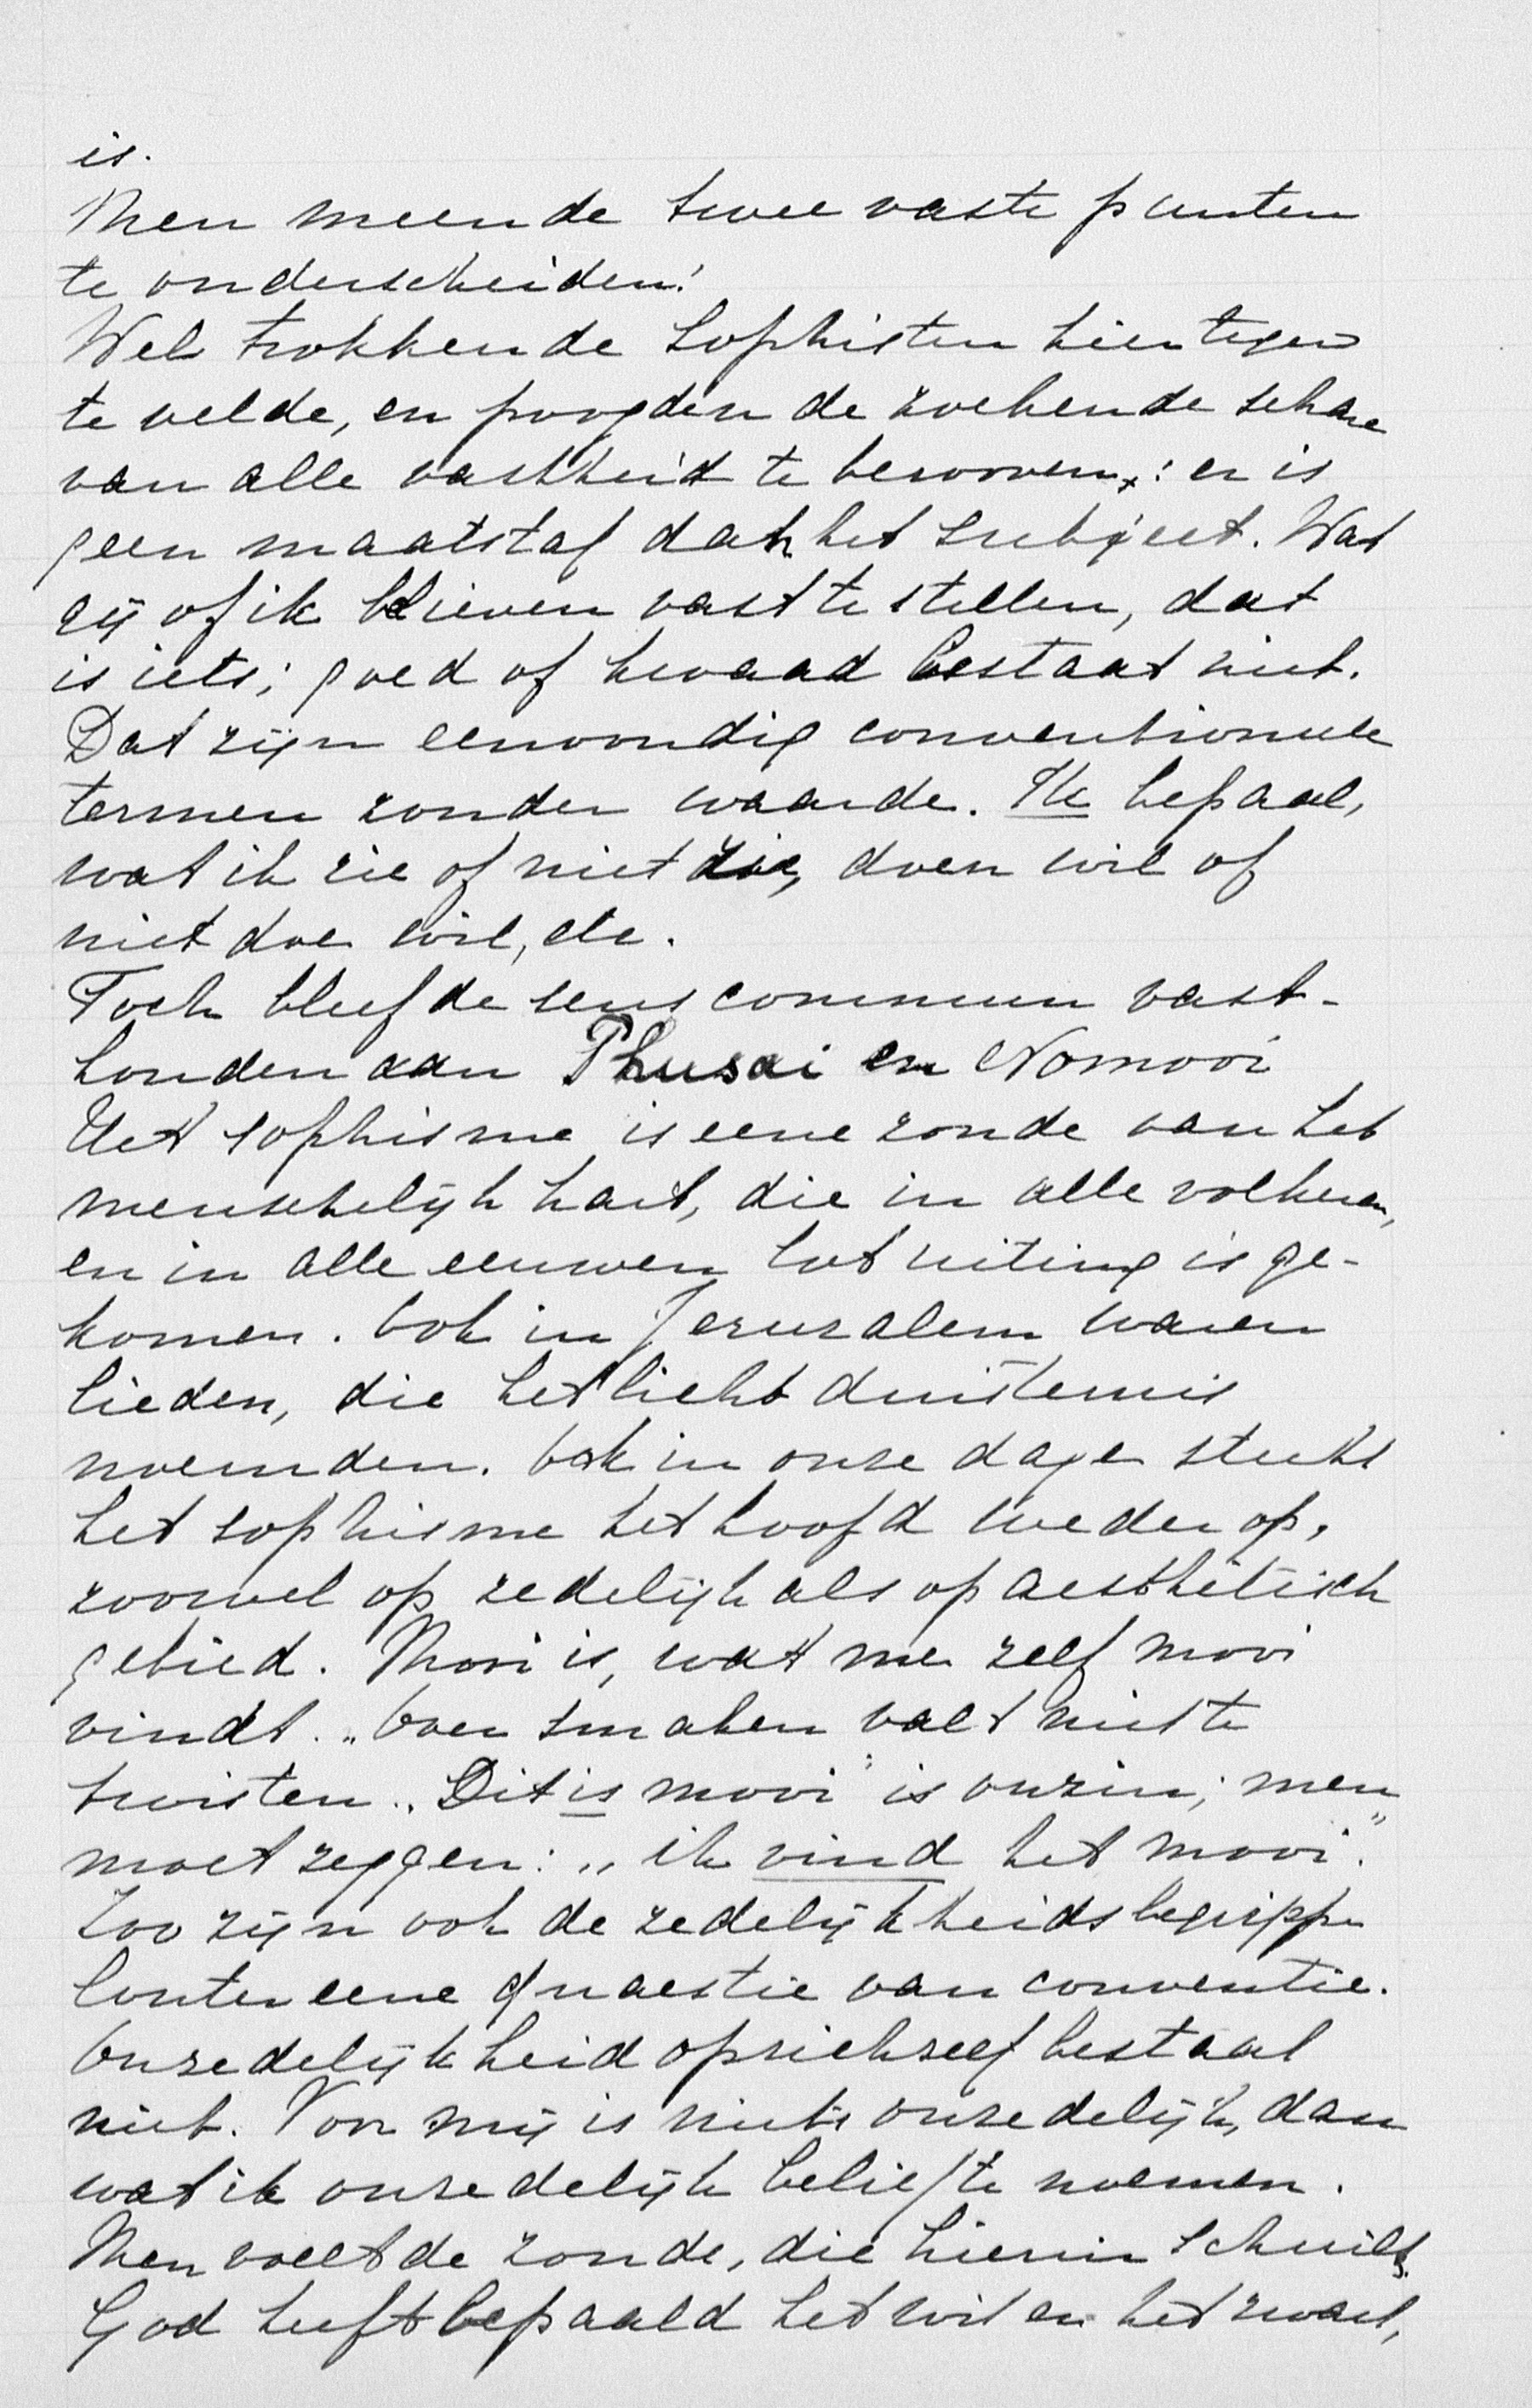 is.
Men meende twee vaste punten
te onderscheiden!
Wel trokken de Sophisten hiertegen
te velde, en poogden de zoekende schare
van alle vastheid te berooven,: er is
geen maatstaf dan het subject. Wat
gij of ik believen vast te stellen, dat
is iets; goed of kwaad bestaat niet.
Dat zijn eenvoudig conventioneele
termen zonder waarde. Ik bepaal,
wat ik zie of niet zie, doen wil of
niet doe wil, etc.
Toch bleef de sens commun vast-
houden aan Phusai en Nomooi
Het sophisme is eene zonde van het
menschelijk hart, die in alle volkeren,
en in alle eeuwen tot uiting is ge-
komen. Ook in Jeruzalem waren
lieden, die het licht duisternis
noemden. Ook in onze dagen steekt
het sophisme het hoofd weder op,
zoowel op zedelijk als op aesthetisch
gebied. Mooi is, wat me zelf mooi
vindt. „Over smaken valt niet te
twisten. „Dit is mooi" is onzin; men
moet zeggen: „ik vind het mooi".
Zoo zijn ook de zedelijkheidsbegrippen
louter eene quaestie van conventie.
Onzedelijkheid opzichzelf bestaat
niet. Voor mij is niets onzedelijk, dan
wat ik onzedelijk beliefte noemen.
Men voelt de zonde, die hierin schuilt.
God heeft bepaald het wit en het zwart,